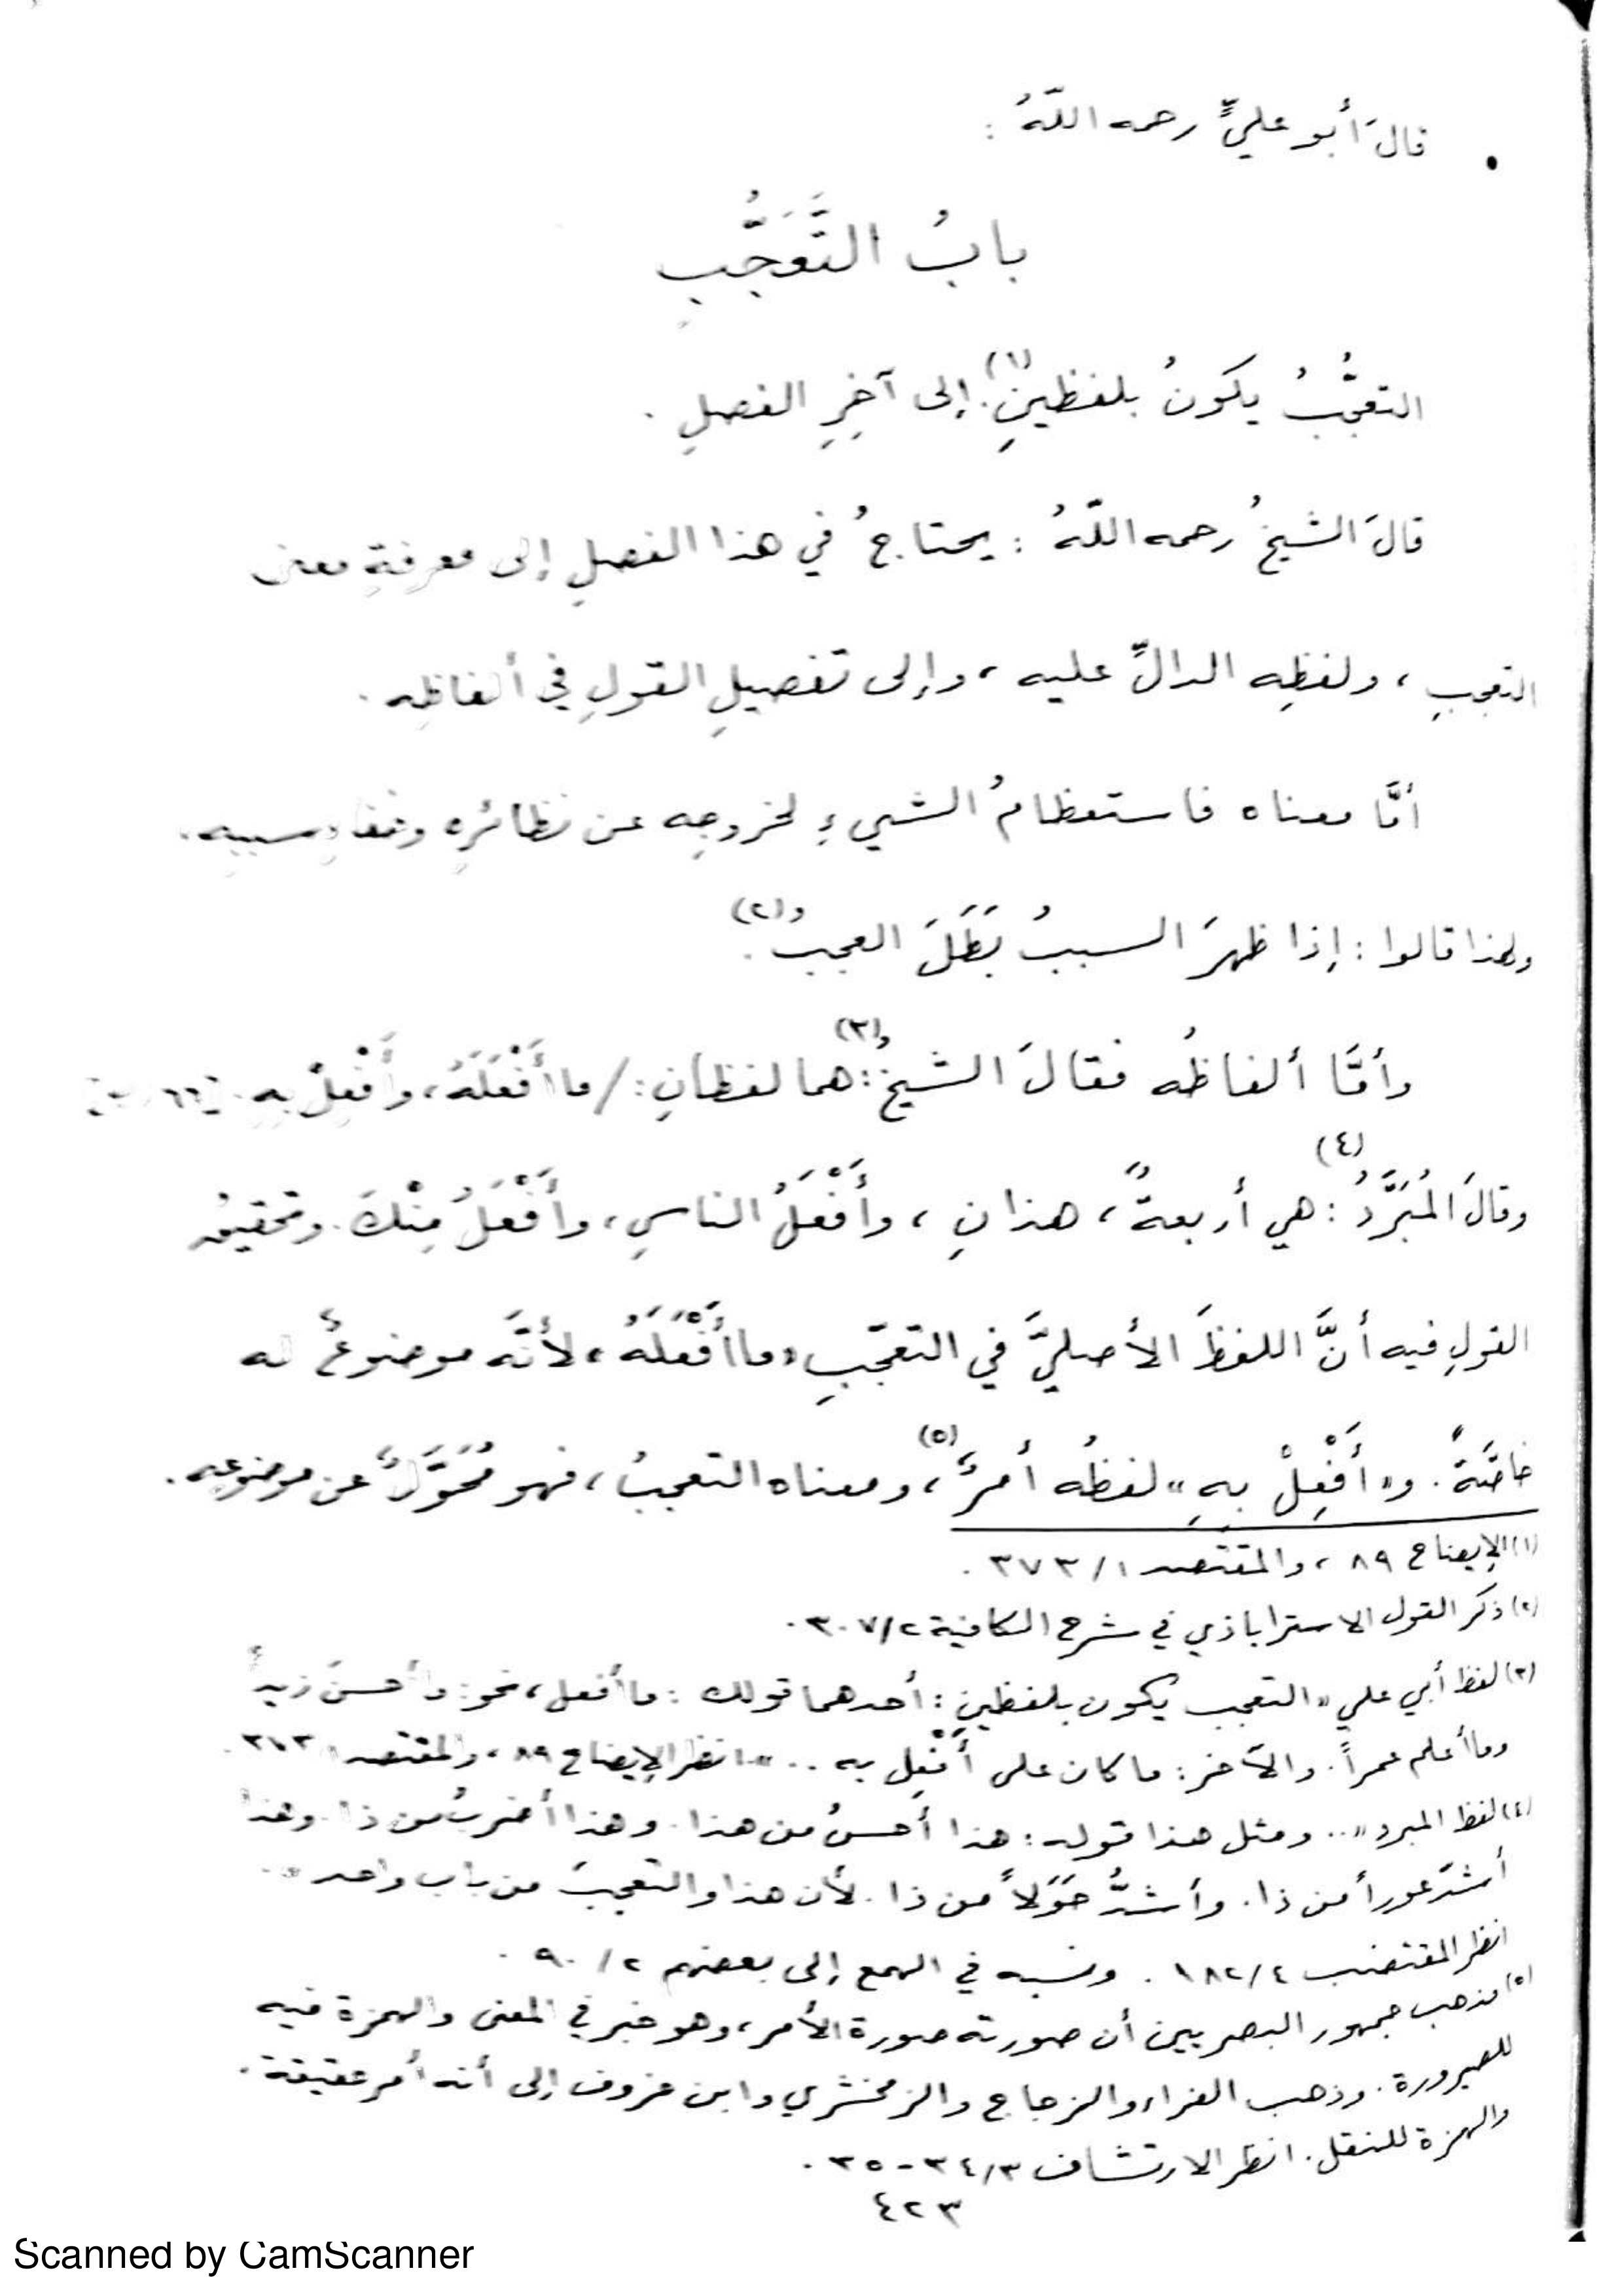 قالَ أبو عليٍّ رحمه اللّهُ :
بابُ التَّعَجُّبِ
التعجُّبُ يكونُ بلفظينِ(١). إلى آخِرِ الفصلِ .
قالَ الشيخُ رحمه اللّهُ : يحتاجُ في هذا الفصلِ إلى معرفةِ معنى
التعجبِ ، ولفظِه الدالِّ عليه ، وإلى تفصيلِ القولِ في ألفاظِه .
أمَّا معناه فاستعظامُ الشيءِ لخروجِه عن نظائرِه وخفاءِ سببِه .
ولهذا قالوا : إذا ظهرَ السببُ بَطَلَ العجبُ(٢) .
وأمَّا ألفاظُه فقالَ الشيخُ(٣) : هما لفظانِ : / ما أَفْعَلَهُ ، وأَفْعِلْ بِهِ .
وقالَ المُبَرَّدُ(٤) : هي أربعةٌ ، هذانِ ، وأَفْعَلُ الناسِ ، وأَفْعَلُ مِنْكَ . وتحقيقُ
القولِ فيه أنَّ اللفظَ الأصليَّ في التعجّبِ « ما أَفْعَلَهُ » لأنَّه موضوعٌ له
خاصَّةً . و« أَفْعِلْ بِهِ » لفظُه أمرٌ(٥) ، ومعناه التعجبُ ، فهو مُحَوَّلٌ عن موضوعِه .
(١) الإيضاح ٨٩ ، والمقتصد ١/ ٣٧٣ .
(٢) ذكر القول الاستراباذي في شرح الكافية ٢/ ٣٠٧ .
(٣) لفظ أبي علي « التعجب يكون بلفظين : أحدهما قولك : ما أفعل ، نحو : ما أحسنَ زيداً
وما أعلم عمراً . والآخر : ما كان على أَفْعِل به .. » . انظر الإيضاح ٨٩ ، والمقتصد ١/ ٣٧٣ .
(٤) لفظ المبرد « .. ومثل هذا قوله : هذا أحسنُ من هذا . وهذا أضربُ من ذا . وهذا
أشدّ عوراً من ذا . وأشدُّ حَوَلاً من ذا . لأن هذا والتعجبَ من باب واحد » .
انظر المقتضب ٤/ ١٨٢ . ونسبه في الهمع إلى بعضهم ٢/ ٩٠ .
(٥) مذهب جمهور البصريين أن صورته صورة الأمر ، وهو خبر في المعنى والهمزة فيه
للصيرورة . وذهب الفراء والزجاج والزمخشري وابن خروف إلى أنه أمر حقيقة .
والهمزة للنقل . انظر الارتشاف ٣/ ٣٤ - ٣٥ .
٤٢٣
Scanned by CamScanner